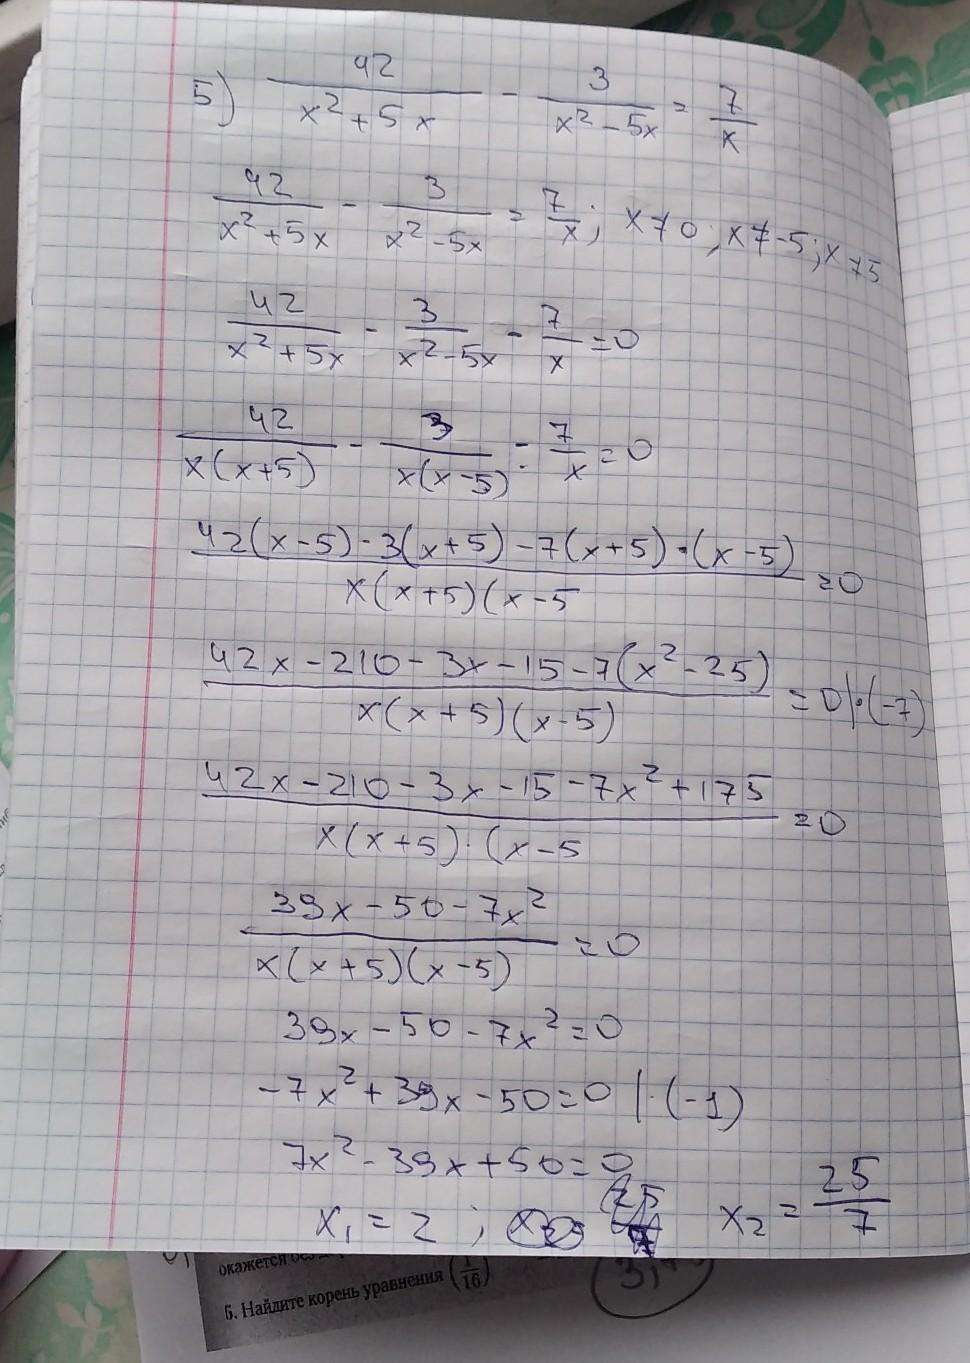 5) 42/(x²+5x) - 3/(x²-5x) = 7/x
42/(x²+5x) - 3/(x²-5x) = 7/x; x≠0; x≠-5; x≠5
42/(x²+5x) - 3/(x²-5x) - 7/x = 0
42/(x(x+5)) - 3/(x(x-5)) - 7/x = 0
42(x-5)-3(x+5)-7(x+5)·(x-5) / x(x+5)(x-5 = 0
42x-210-3x-15-7(x²-25) / x(x+5)(x-5) = 0 |·(-7)
42x-210-3x-15-7x²+175 / x(x+5)·(x-5 = 0
39x-50-7x² / x(x+5)(x-5) = 0
39x-50-7x²=0
-7x²+39x-50=0 |·(-1)
7x²-39x+50=0
x₁=2; x₂=25/7
окажется
6. Найдите корень уравнения (1/16)